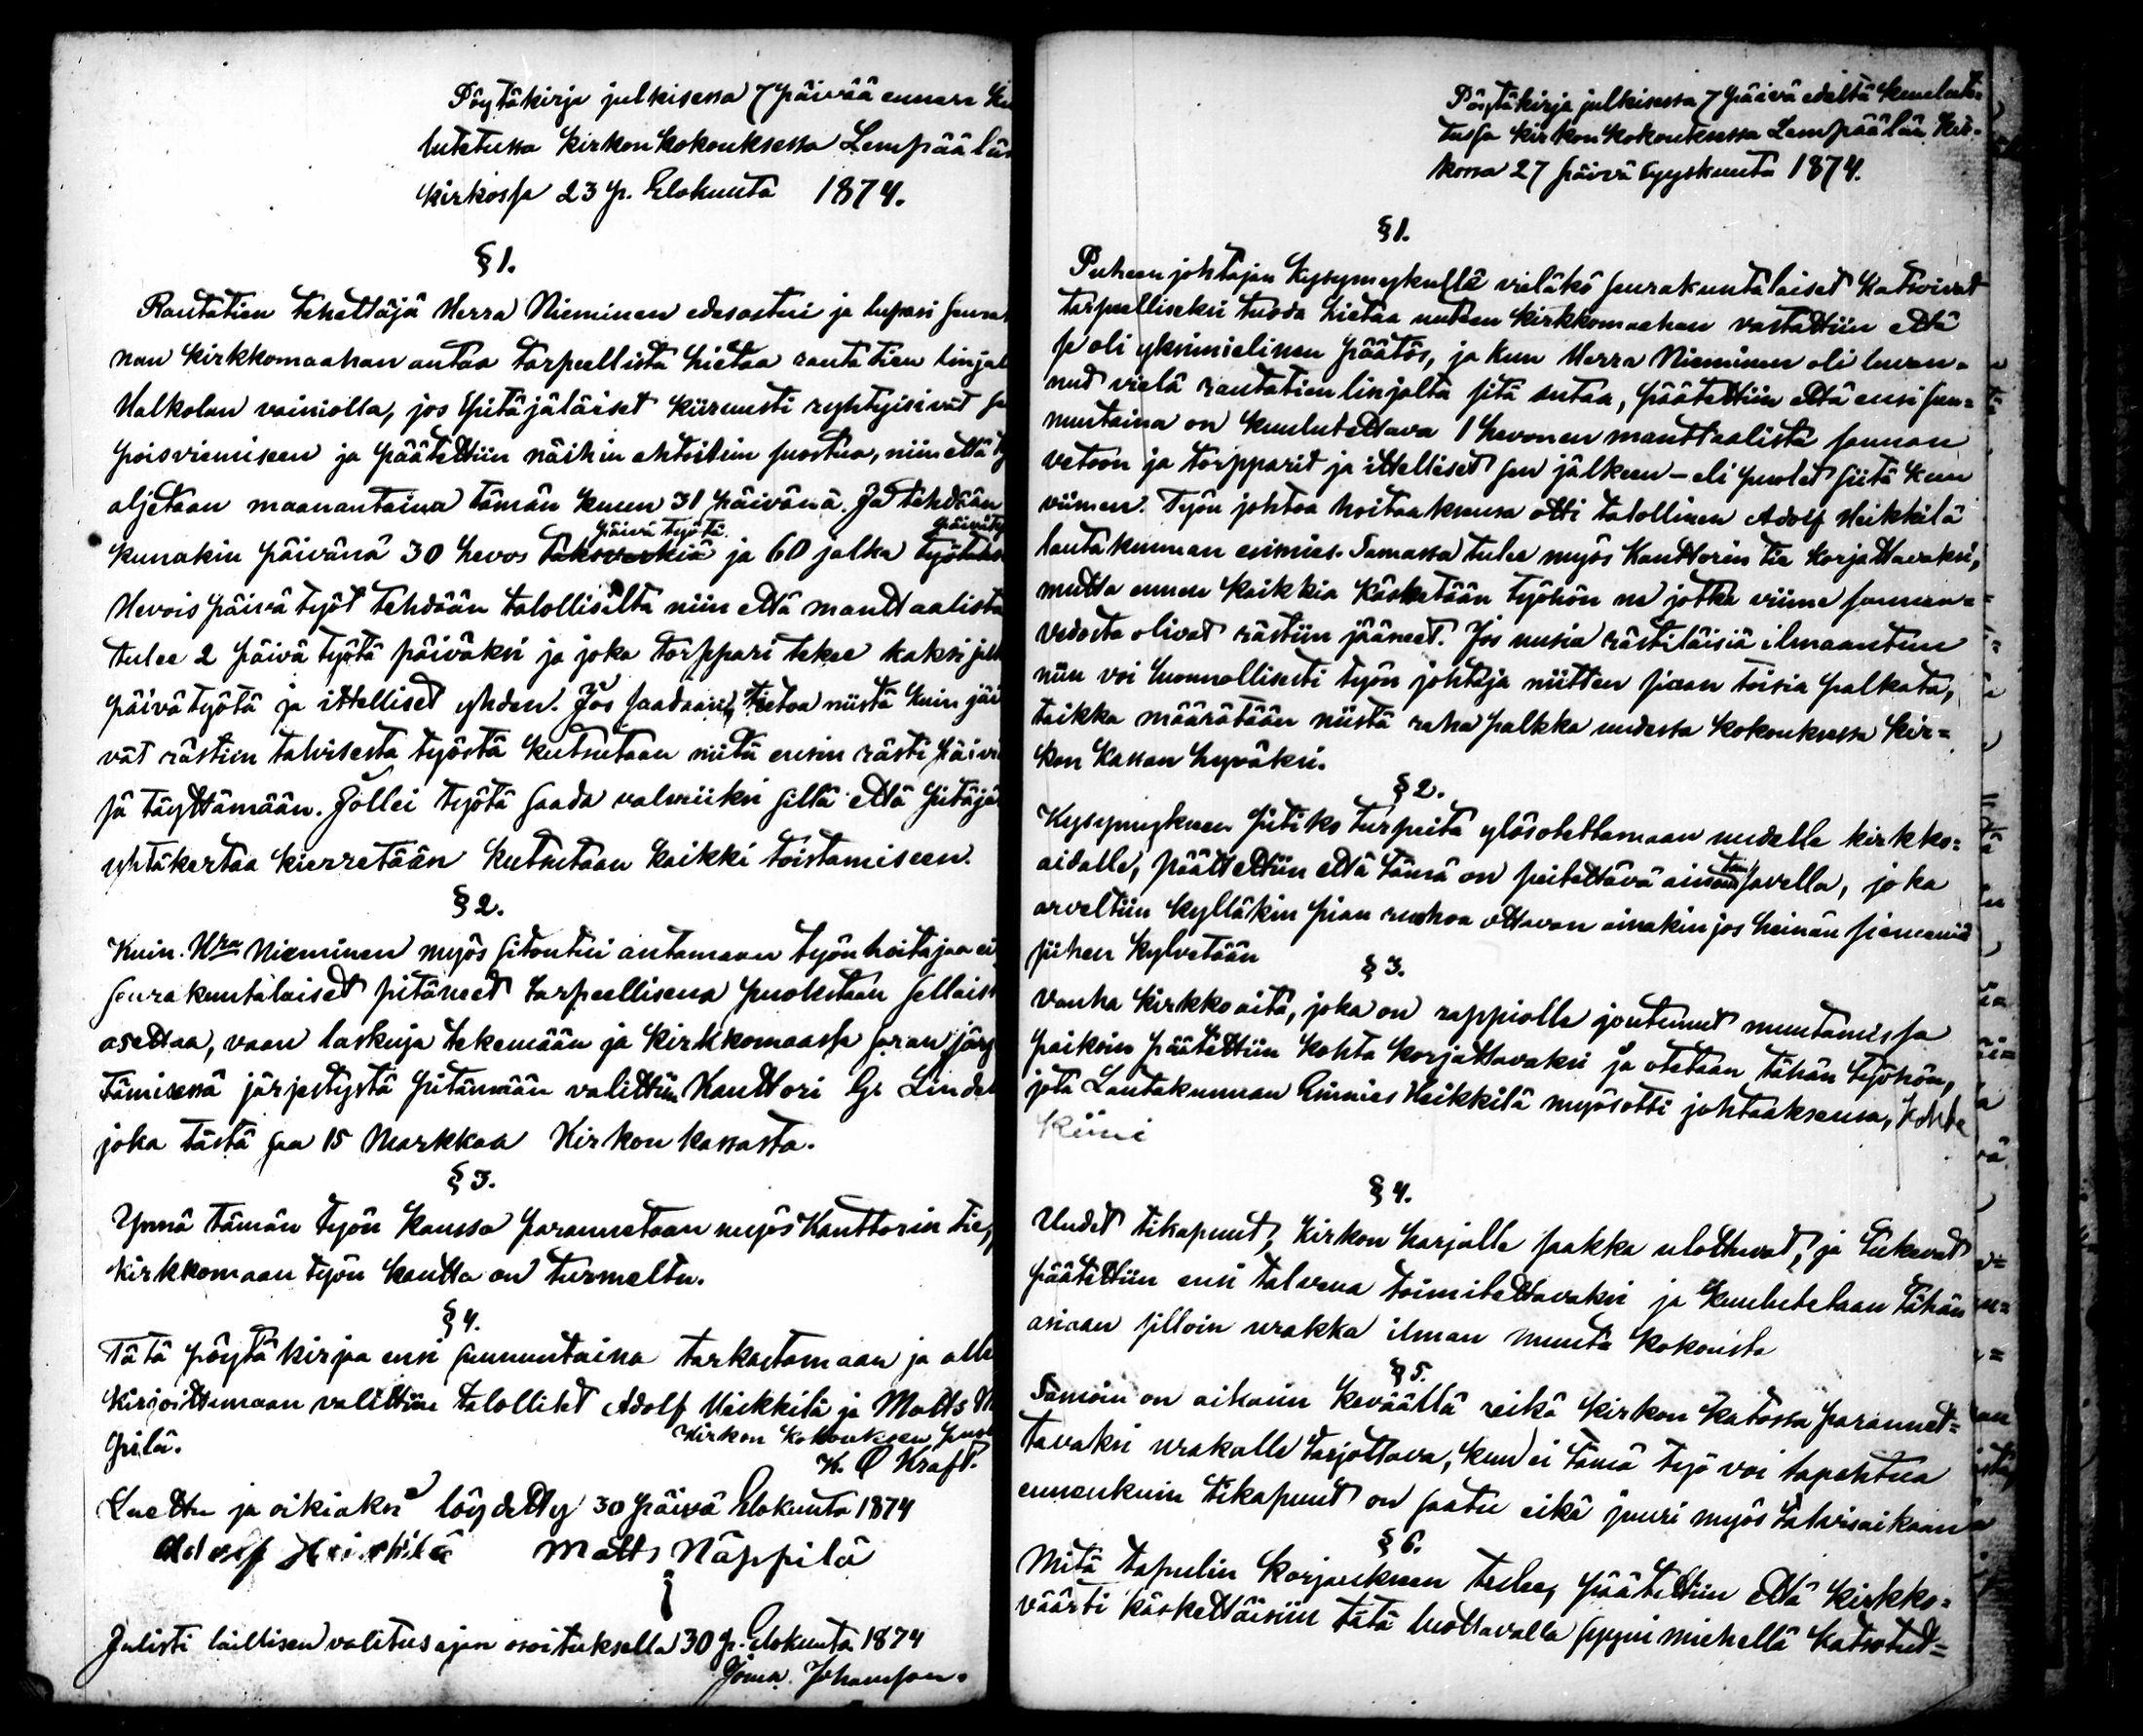 Pöytäkirja julkisessa 7 päivää ennen ku
lutetussa kirkonkokouksessa Lempäälän
kirkossa 23 p. Elokuuta 1874.
§ 1.
Rautatien tehettäjä Herra Nieminen edesastui ja lupasi seura
nan kirkkomaahan antaa tarpeellista hietaa rautatien linjal
Halkolan vainiolla, jos pitäjäläiset kiiruusti ryhtyisivät se
poisviemiseen ja päätettiin näihin ehtoihin suostua, niin että ty
aljetaan maanantaina tämän kuun 31 päivänä. Ja tehdään
päivä työtä päivöty
kunakin päivänä 30 hevos taksvärkiä ja 60 jalka
Hevois päivä työt tehdään talollisilta niin että manttaalista
tulee 2 päivä työtä päiväksi ja joka torppari tekee kaksi jal
päivätyötä ja ittelliset yhden. Jos saadaan tietoa niistä kuin jäi
vät rästiin talvisesta työstä kutsutaan niitä ensin rästi päivi
sä täyttämään. Jollei työtä saada valmiiksi sillä että pitäjä
yhtäkertaa kierretään kutsutaan kaikki toistamiseen.
§ 2.
Kuin Hra Nieminen myös sitoutui antamaan työn hoitajaa ei
seurakuntalaiset pitäneet tarpeellisena puolestaan sellaist
asettaa, vaan laskuja tekemään ja kirkkomaassa soran järj
tämisessä järjestystä pitämään valittiin Kanttori G. Lindel
joka tästä saa 15 Markkaa Kirkon kassasta.
§ 3.
Ynnä tämän työn kanssa parannetaan myös Kanttorin tie,
kirkkomaan työn kautta on turmeltu.
§ 4.
Tätä pöytäkirjaa ensi sunnuntaina tarkastamaan ja alle
kirjoittamaan valittiin talolliset Adolf Heikkilä ja Matts N
ppilä.
Kirkon kokouksen puol
K. O Kraft.
Luettu ja oikiaksi löydetty 30 päivä Elokuuta 1874
Adolf Heikkilä Matts Näppilä
Julisti laillisen valitusajan osoituksella 30 p. Elokuuta 1874
Joma. Johansson.
Pöytäkirja julkisessa 7 päivä edeltä kuulute-
tussa kirkonkokouksessa Lempäälän kir-
kossa 27 päivä Syyskuuta 1874.
§ 1.
Puheenjohtajan kysymyksellä vieläkö seurakuntalaiset katsoivat
tarpeelliseksi tuoda hietaa uuteen kirkkomaahan vastattiin että
se oli yksimielinen päätös, ja kun Herra Nieminen oli luvan-
nut vielä rautatien linjalta sitä antaa, päätettiin että ensi sun-
nuntaina on kuulutettava 1 hevonen manttaalista sannan
vetoon ja torpparit ja ittelliset sen jälkeen – eli puolet siitä kuin
viimen. Työn johtoa hoitaaksensa otti talollinen Adolf Heikkilä
lautakunnan esimies. Samassa tulee myös Kanttorin tie korjattavaksi,
mutta ennen kaikkia käsketään työhön ne jotka viime sannan-
vedosta olivat rästiin jääneet. Jos uusia rästiläisiä ilmaantuu
niin voi luonnollisesti työn johtaja niitten siaan toisia palkata,
taikka määrätään niistä raha palkka uudessa kokouksessa kir-
kon kassan hyväksi.
§ 2.
Kysymykseen pitikö turpeita ylösotettamaan uudelle kirkko-
aidalle, päätettiin että tämä on peitettävä savella, joka
arveltiin kylläkin pian ruohoa ottavan ainakin jos heinän siemeniä
siihen kylvetään
§ 3.
Vanha kirkkoaita, joka on rappiolle joutunut muutamissa
paikoin päätettiin kohta korjattavaksi ja otetaan tähän työhön,
jota Lautakunnan Esimies Heikkilä myös otti johtaaksensa,
§ 4.
Uudet tikapuut, Kirkon harjalle saakka ulottuvat, ja tukevat
päätettiin ensi talvena toimitettavaksi ja kuulutetaan tähän
asiaan silloin urakka ilman muuta kokousta
§ 5.
Samoin on aikaiin keväällä reikä kirkon katossa parannet-
tavaksi urakalle tarjottava, kun ei tämä työ voi tapahtua
ennenkuin tikapuut on saatu eikä juuri myös talvisaikaana
§ 6.
Mitä tapulin korjaukseen tulee, päätettiin että kirkko-
väärti käskettäisiin tätä luottavalla syynimiehellä katsotut-